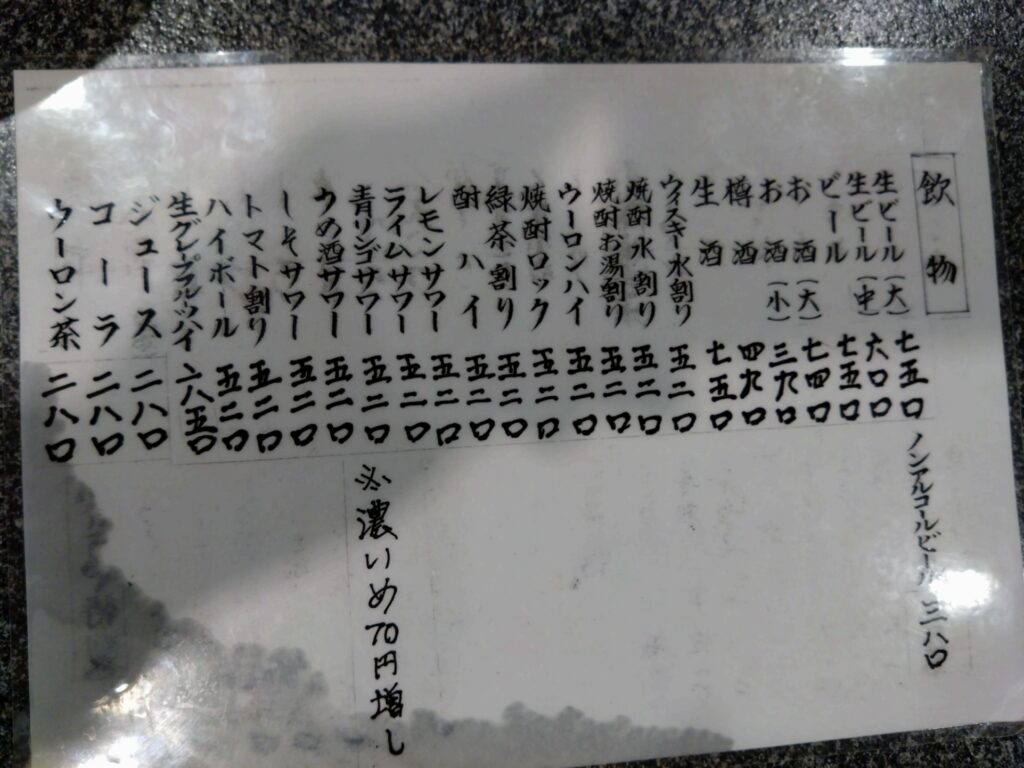 飲物
生ビール(大) 七五〇
生ビール(中) 六〇〇
ビール 七五〇
お酒(大) 七四〇
お酒(小) 三九〇
樽酒 四九〇
生酒 七五〇
ウイスキー水割り 五二〇
焼酎水割り 五二〇
焼酎お湯割り 五二〇
ウーロンハイ 五二〇
焼酎ロック 五二〇
緑茶割り 五二〇
酎ハイ 五二〇
レモンサワー 五二〇
ライムサワー 五二〇
青リンゴサワー 五二〇
うめ酒サワー 五二〇
しそサワー 五二〇
トマト割り 五二〇
ハイボール 五二〇
生グレープフルーツハイ 六五〇
ジュース 二八〇
コーラ 二八〇
ウーロン茶 二八〇
ノンアルコールビール 三八〇
※濃いめ70円増し